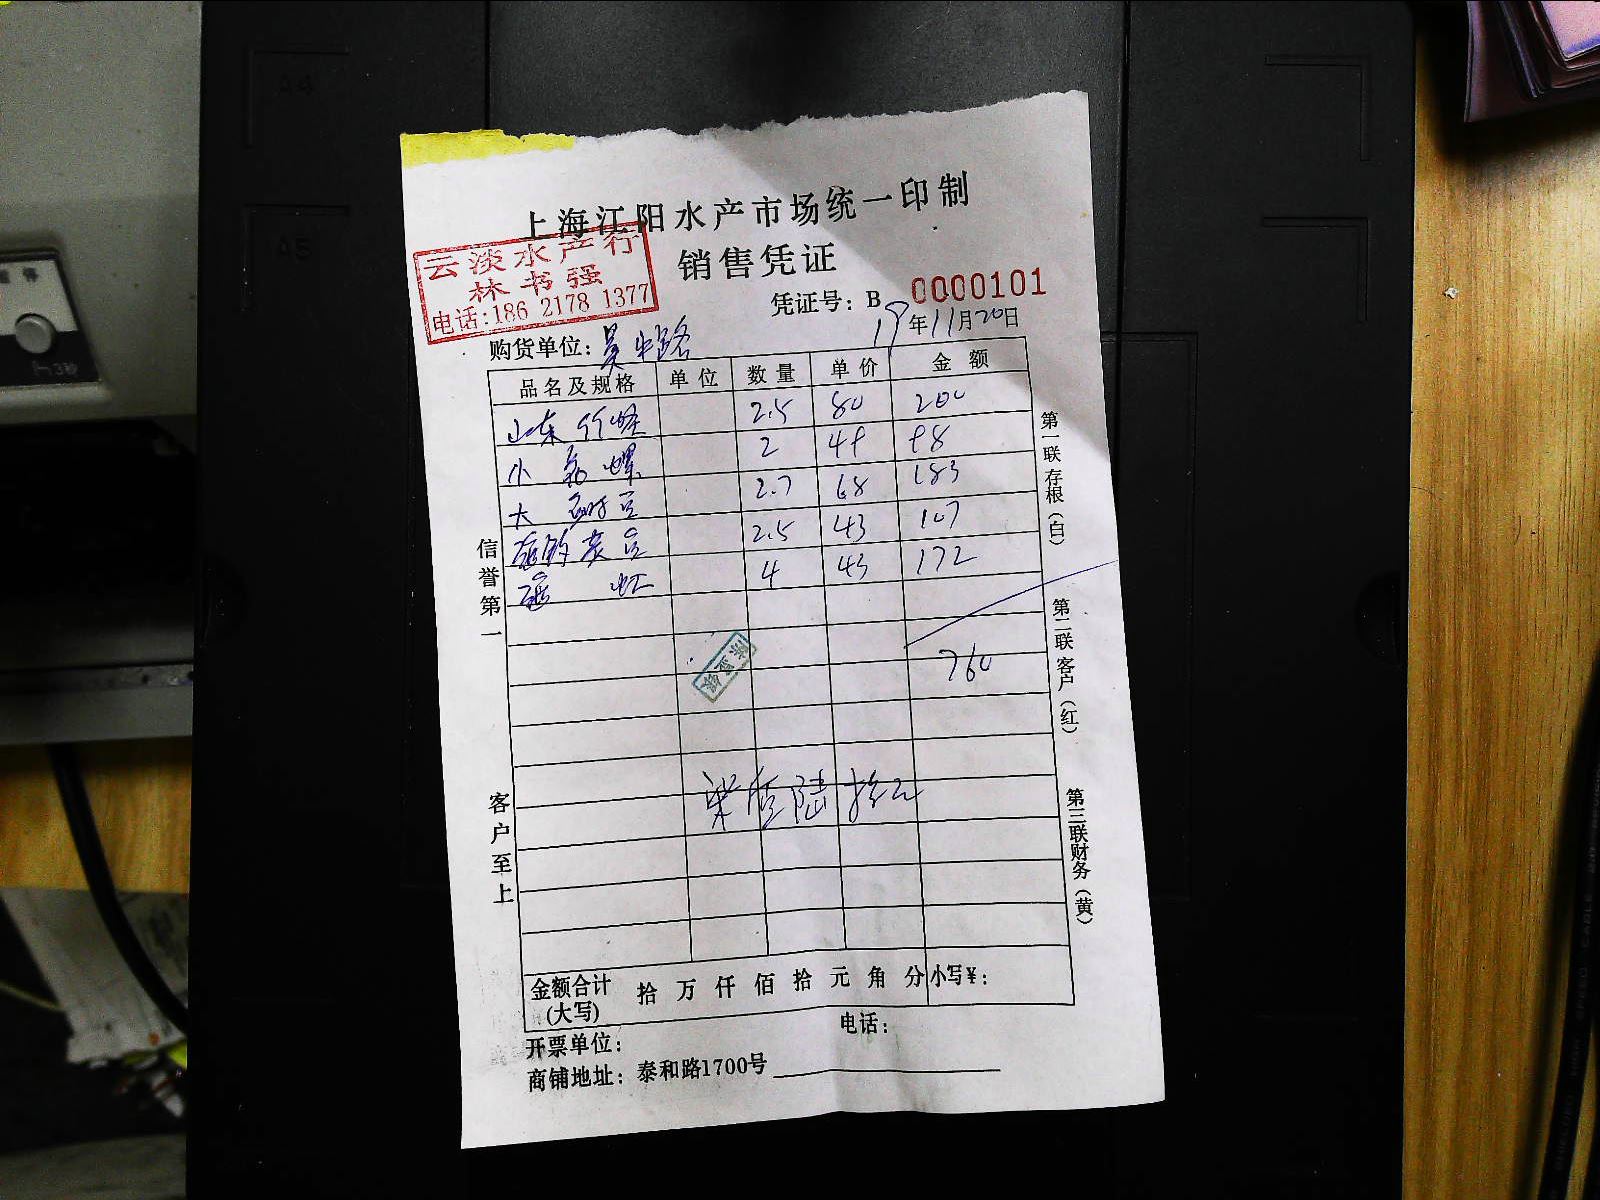 A4
A5
3秒
上海江阳水产市场统一印制
云淡水产行
林书强
电话:186 2178 1377
销售凭证
凭证号: B 0000101
19年11月20日
购货单位: 吴中路
品名及规格 单位 数量 单价 金额
山东竹蛏 2.5 80 200
小 螺 2 49 98
大 2.7 68 183
2.5 43 107
虹 4 43 172
760
柒佰陆拾元
金额合计(大写) 拾 万 仟 佰 拾 元 角 分 小写¥:
开票单位: 电话:
商铺地址: 泰和路1700号
信誉第一
客户至上
第一联存根(白)
第二联客户(红)
第三联财务(黄)